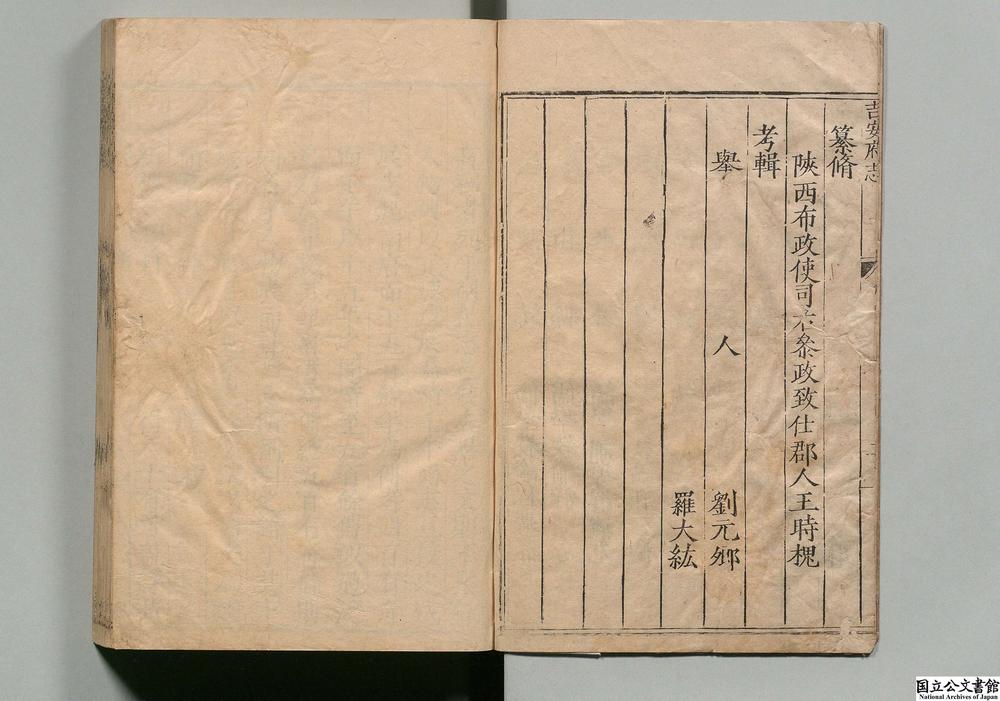 吉安府志
纂脩
陝西布政使司右叅政致仕郡人王時槐
考輯
舉人劉元卿
羅大紘
国立公文書館
National Archives of Japan